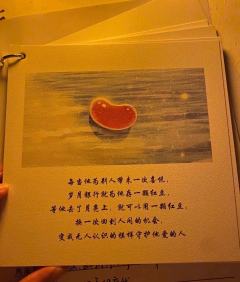 每当他为别人带来一次喜悦，
岁月银行就为他存一颗红豆，
等他去了月亮上，就可以用一颗红豆，
换一次回到人间的机会，
变成无人认识的模样守护他爱的人